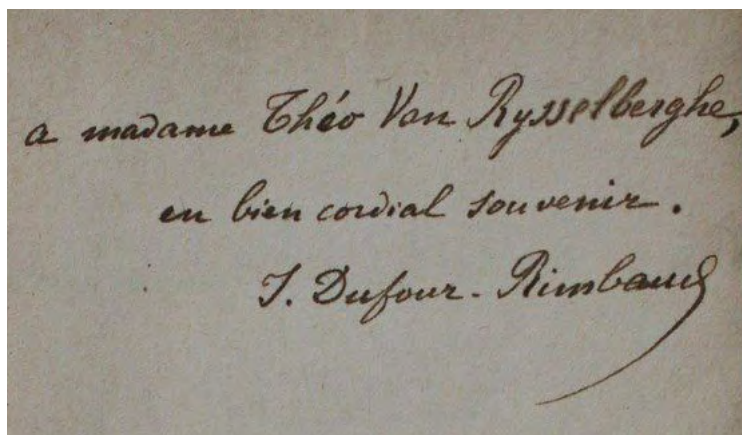 a madame Théo Van Rysselberghe,
en bien cordial souvenir.
I. Dufour-Rimbaud